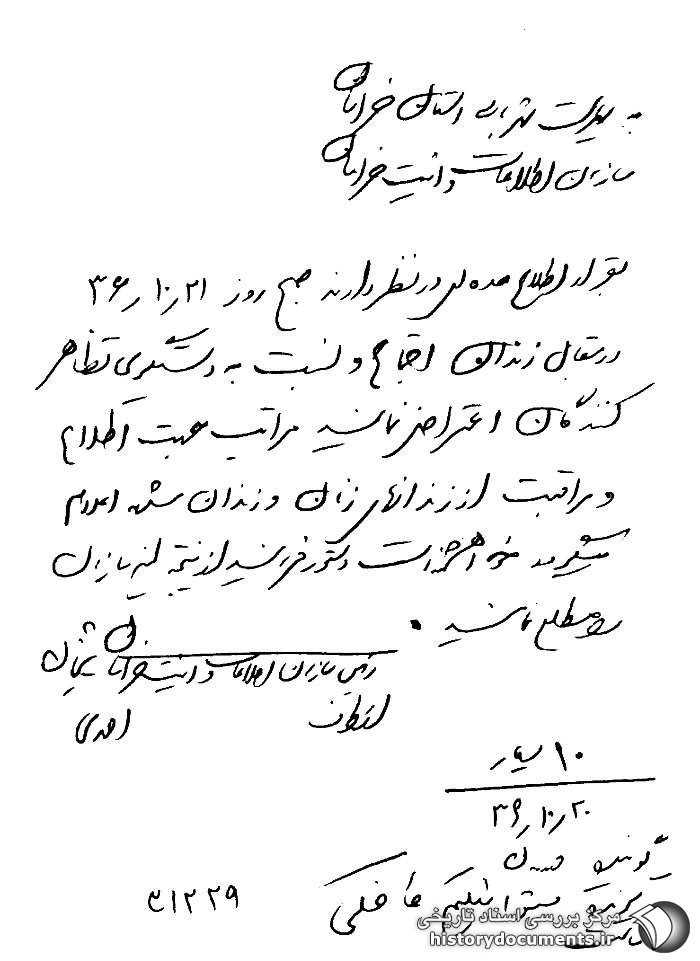 به ریاست شهربانی استان خراسان
سازمان اطلاعات و امنیت خراسان
بقرار اطلاع عده‌ای در نظر دارند صبح روز ۳۶٫۱۰٫۲۱
در مقابل زندان اجتماع و نسبت به دستگیری تظاهر
کنندگان اعتراض نمایند مراتب جهت اطلاع
و مراقبت از زندانهای زنان و زندان اعلام
میگردد خواهشمند است دستور فرمائید از نتیجه این سازمان
را مطلع نمایند .
رئیس سازمان اطلاعات و امنیت خراسان شیخان
از طرف احمدی
۱۰ سیار
۳۶٫۱۰٫۲۰
گوینده
گیرنده
۲۲۹
مرکز بررسی اسناد تاریخی
historydocuments.ir